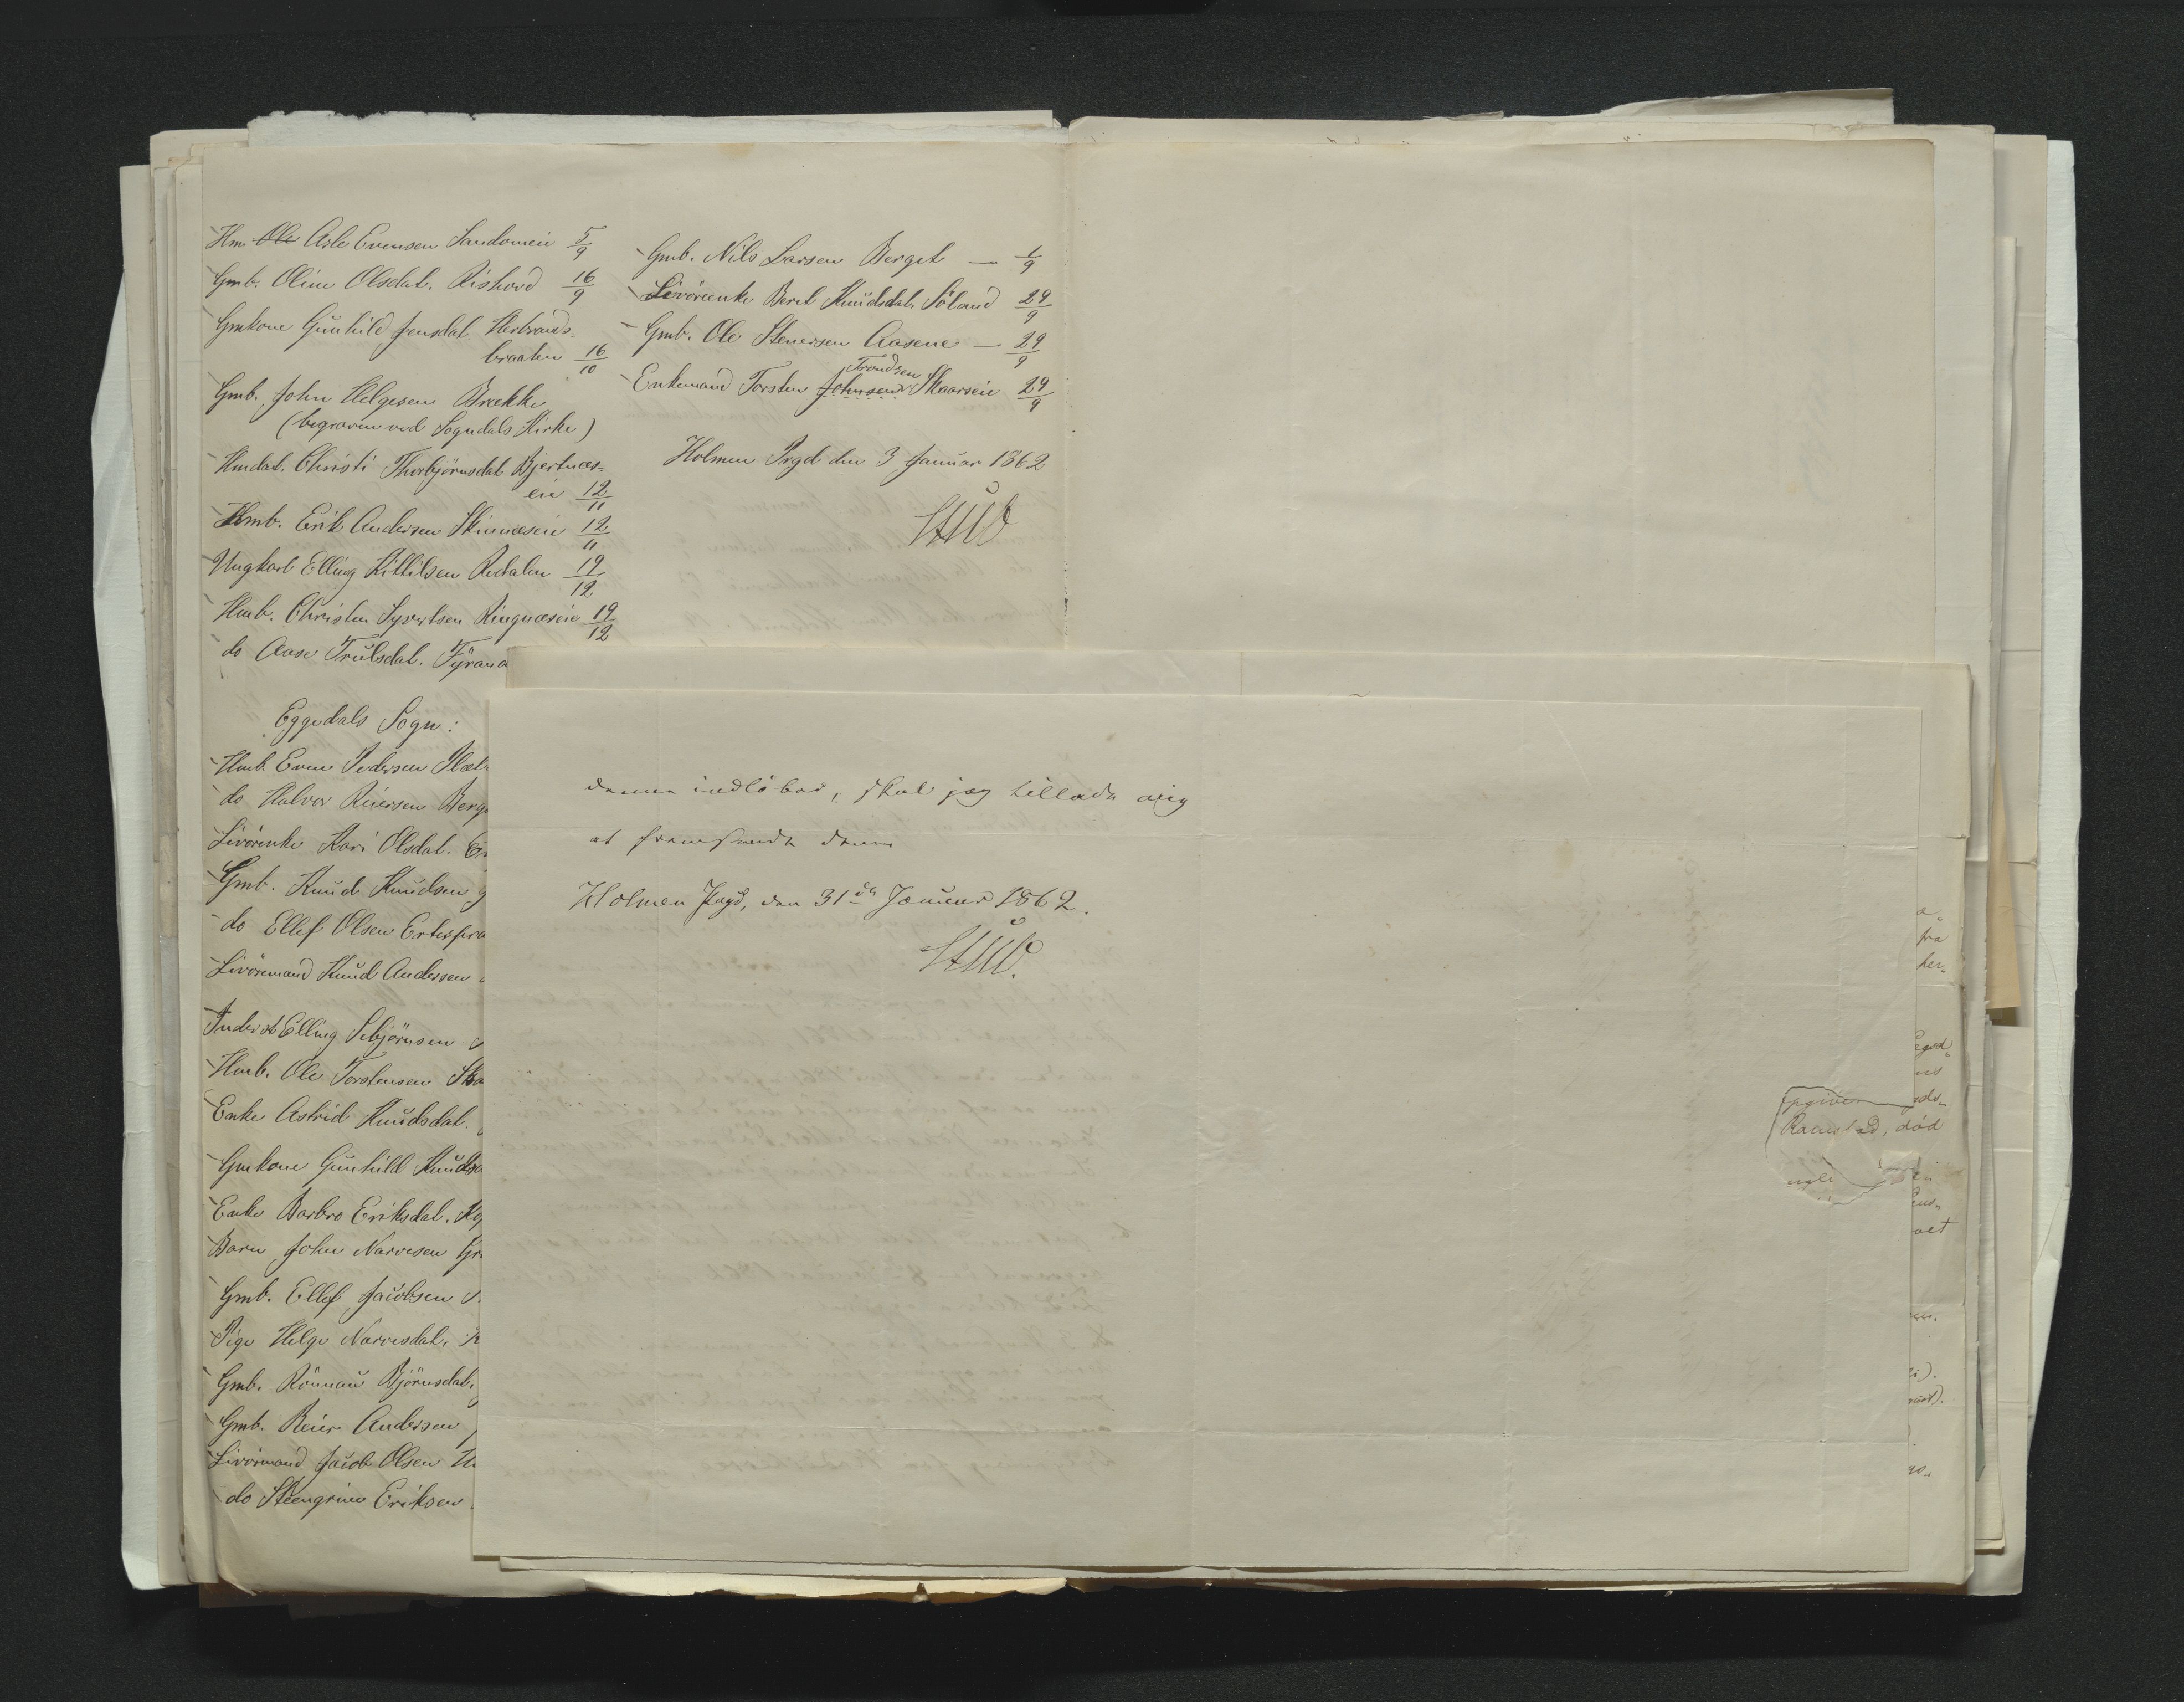 Hm. Ole Asle Evensen Sandomeie 5/9
Gmb. Oline Olsdat. Rishovd 16/9
Gmkone Gunhild Jensdat. Herbrands-
braaten 16/10
Gmb. John Helgesen Brække
(begraven ved Sogndals Kirke)
Hmdat. Christi Thorbjörnsdat. Bjertnæs-
eie 12/11
Hmb. Erik Andersen Skinnæseie 12/11
Ungkarl Elling Kittilsen Rudalen 19/12
Hmb. Christen Syvertsen Ringnæseie 19/12
do Aase Trulsdat.
Eggedals Sogn:
Hmb. Even Pedersen
do Halvor Reiersen
Livörenke Kari Olsdat.
Gmb. Knud Knudsen
do Ellef Olsen
Livöremand Knud Andersen
Inderst Elling Sebjörnsen
Hmb. Ole Torstensen
Enke Astrid Knudsdat.
Gmkone Gunhild
Enke Barbro Eriksdat.
Barn John Narvesen
Gmb. Ellef Jacobsen
Pige Helge Narvesdat.
Gmb. Rönnau Björnsdat.
Gmb. Reier Andersen
Livöremand Jacob Olsen
do Steengrim Eriksen
Gmb. Nils Larsen Berget — 1/9
Livörenke Berit Knudsdat. Söland 29/9
Gmb. Ole Stenersen Aasene — 29/9
Trondsen
Enkemand Torsten Johnsen Skaarseie 29/9
Holmen Prgd den 3 Januar 1862
Stub
denne indløber, skal jeg tillade mig
at fremsende den
Holmen Prgd, den 31te Januar 1862.
Stub.
fra
her-
død